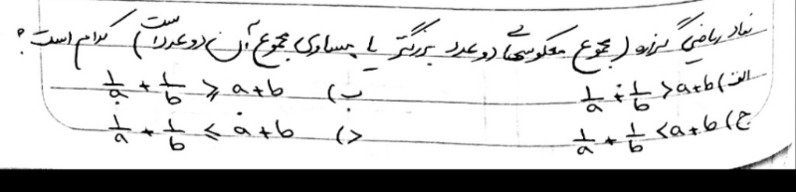 نماد ریاضی گزاره (مجموع معکوس‌های دو عدد بزرگتر یا مساوی مجموع آن دو عدد است) کدام است؟
الف) 1/a + 1/b > a+b ب) 1/a + 1/b ⩾ a+b
ج) 1/a + 1/b < a+b د) 1/a + 1/b ⩽ a+b